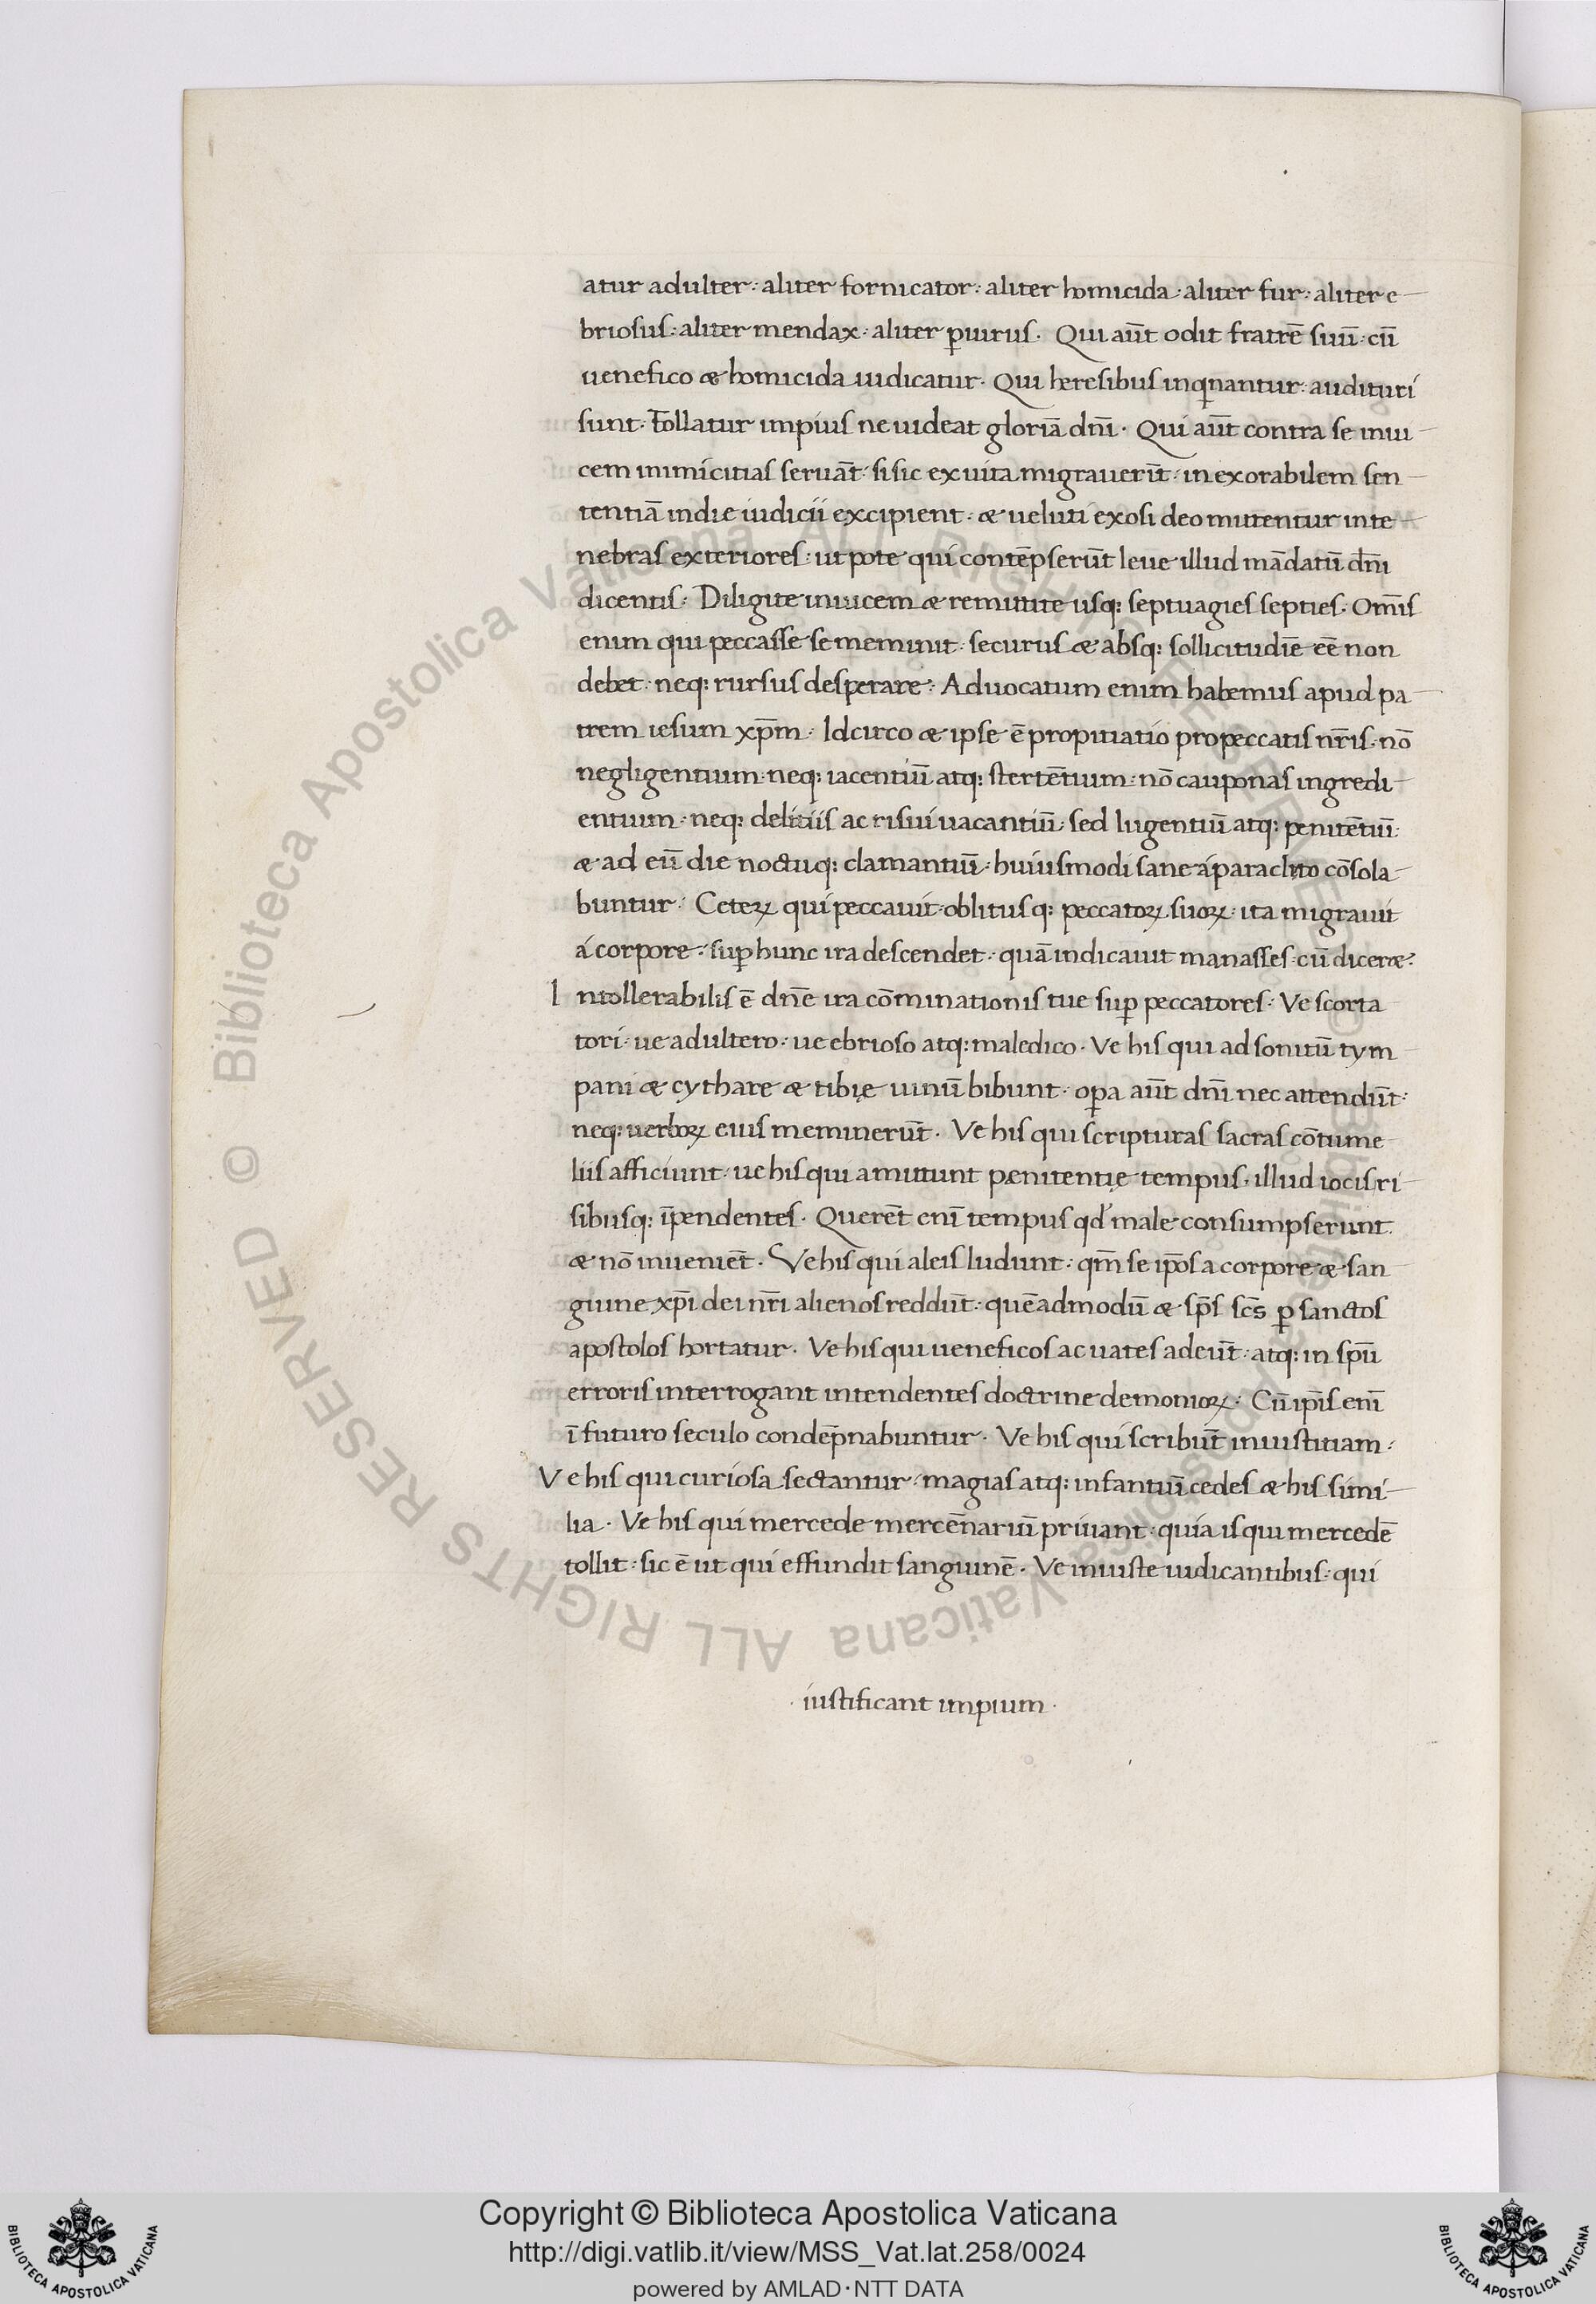 atur adulter: aliter fornicator: aliter homicida: aliter fur: aliter e
briosus: aliter mendax: aliter ꝑiurus. Qui aūt odit fratrē suū: cū
uenefico æ homicida iudicatur. Qui heresibus inqͥnantur: audituri
sunt: Tollatur impius ne uideat gloriā dn̄i. Qui aūt contra se inui
cem inimicitias seruāt: si sic ex uita migrauerūt: inexorabilem sen
tentiā in die iudicii excipient: æ ueluti exosi deo mittentur in te
nebras exteriores: ut pote qui contēpserūt leue illud mādatū dn̄i
dicentis: Diligite inuicem æ remittite usq: septuagies septies. Om̄is
enim qui peccasse se meminit: securus æ absq: sollicitudīe eē non
debet: neq: rursus desperare: Aduocatum enim habemus apud pa
trem iesum xp̄m: Idcirco æ ipse ē propitiatio pro peccatis nr̄is: nō
negligentium: neq: iacentiū atq: stertētium: nō cauponas ingredi
entium: neq: delitiis ac risui uacantiū: sed lugentiū atq: penitētiū:
æ ad eū die noctuq: clamantiū: huiusmodi sane á paraclito cōsola
buntur: Ceteꝝ qui peccauit: oblitusq: peccatoꝝ suoꝝ: ita migrauit
á corpore: suꝑ hunc ira descendet: quā indicauit manasses: cū diceræ:
Intollerabilis ē dn̄e ira cōminationis tue suꝑ peccatores: Ve scorta
tori: ue adultero: ue ebrioso atq: maledico. Ve his qui ad sonitū tym
pani æ cythare æ tibię uinū bibunt: oꝑa aūt dn̄i nec attendūt:
neq: uerboꝝ eius meminerūt. Ve his qui scripturas sacras cōtume
liis afficiunt: ue his qui amittunt pęnitentię tempus: illud iocis ri
sibusq: īpendentes. Querēt enī tempus qd' male consumpserunt:
æ nō inuenient. Ve his qui aleis ludunt: qm̄ se ip̄os a corpore æ san
guine xp̄i dei nr̄i alienos reddūt: quēadmodū æ sp̄s sc̄s ꝑ sanctos
apostolos hortatur. Ve his qui ueneficos ac uates adeūt: atq: in sp̄u
erroris interrogant intendentes doctrine demonioꝝ: Cū ip̄is enī
ī futuro seculo condēpnabuntur. Ve his qui scribūt iniustitiam:
Ve his qui curiosa sectantur: magias atq: infantiū cedes æ his simi
lia. Ve his qui mercede mercēnariū priuant: quia is qui mercedē
tollit: sic ē ut qui effundit sanguinē. Ve iniuste iudicantibus: qui
· iustificant impium ·
© Biblioteca Apostolica Vaticana ALL RIGHTS RESERVED
© Biblioteca Apostolica Vaticana ALL RIGHTS RESERVED
Copyright © Biblioteca Apostolica Vaticana
http://digi.vatlib.it/view/MSS_Vat.lat.258/0024
powered by AMLAD·NTT DATA
BIBLIOTECA APOSTOLICA VATICANA
BIBLIOTECA APOSTOLICA VATICANA